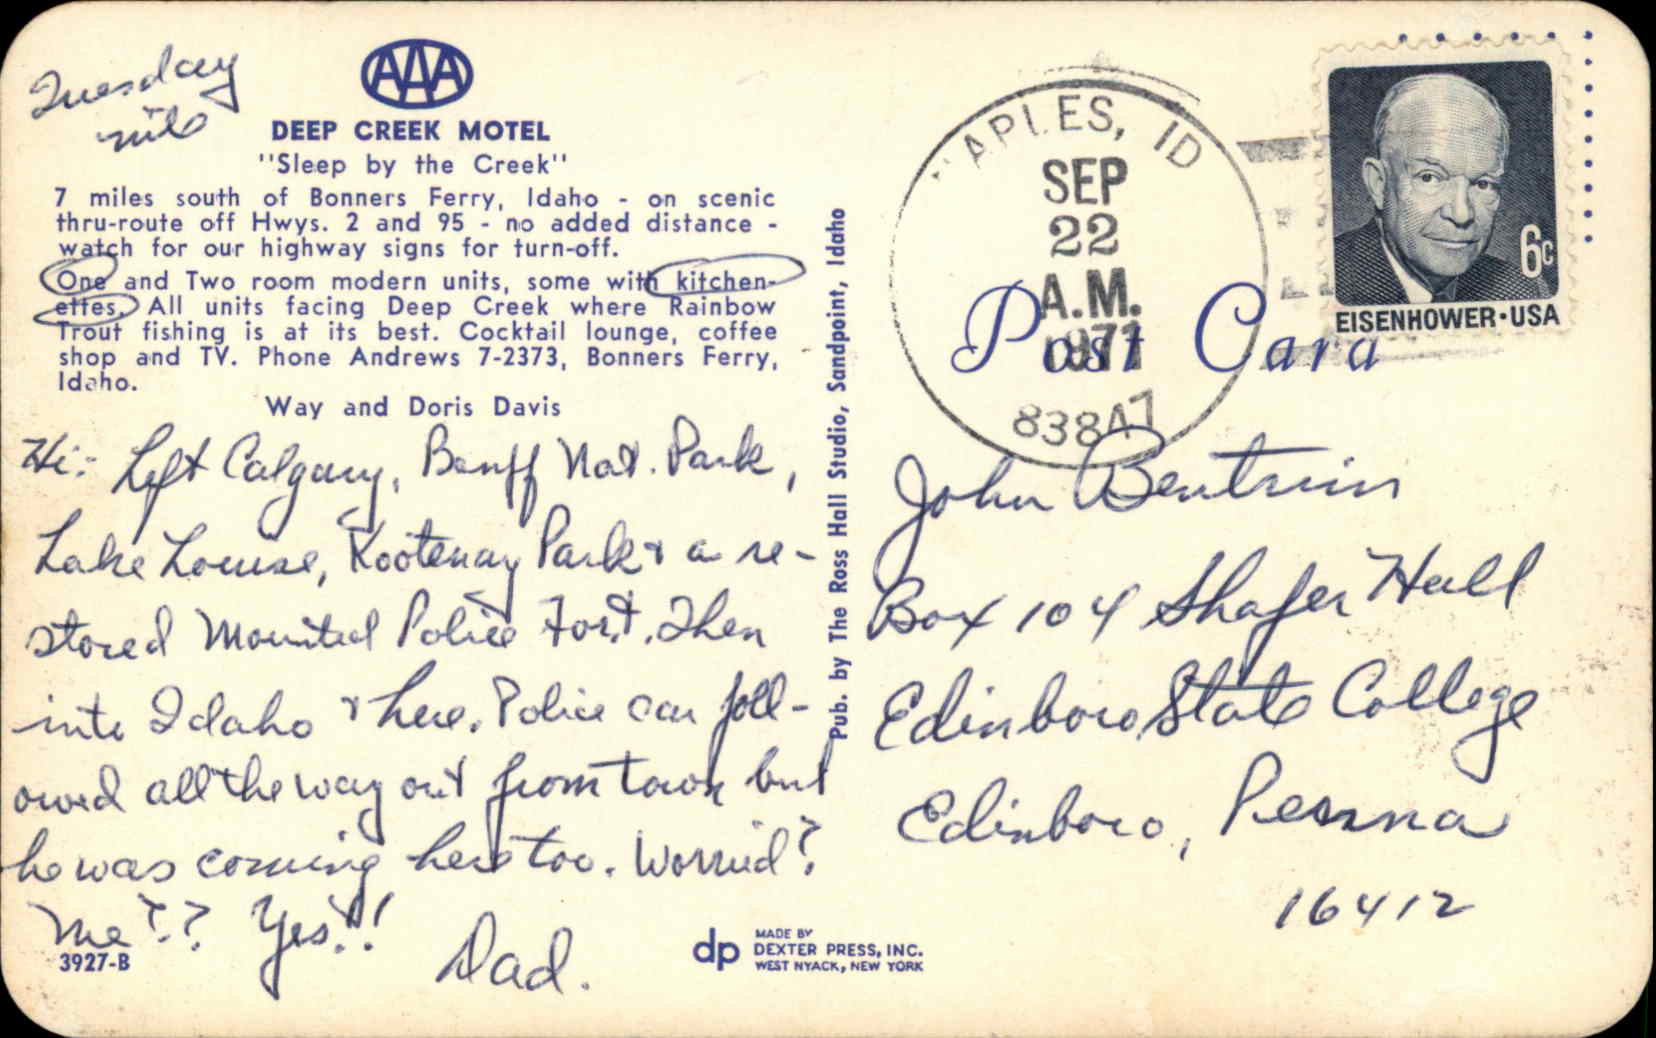 Tuesday
nite
AAA
DEEP CREEK MOTEL
"Sleep by the Creek"
7 miles south of Bonners Ferry, Idaho - on scenic
thru-route off Hwys. 2 and 95 - no added distance -
watch for our highway signs for turn-off.
One and Two room modern units, some with kitchen-
ettes. All units facing Deep Creek where Rainbow
Trout fishing is at its best. Cocktail lounge, coffee
shop and TV. Phone Andrews 7-2373, Bonners Ferry,
Idaho.
Way and Doris Davis
Hi: Left Calgary, Banff Nat. Park,
Lake Louise, Kootenay Park & a re-
stored Mounted Police Fort. Then
into Idaho & here. Police car foll-
owed all the way out from town but
he was coming here too. Worried?
Me?? Yes!!
Dad.
3927-B
dp
MADE BY
DEXTER PRESS, INC.
WEST NYACK, NEW YORK
Pub. by The Ross Hall Studio, Sandpoint, Idaho
NAPLES, ID
SEP
22
A.M.
1971
83847
6c
EISENHOWER·USA
Post Card
John Bentrim
Box 104 Shafer Hall
Edinboro State College
Edinboro, Penna
16412